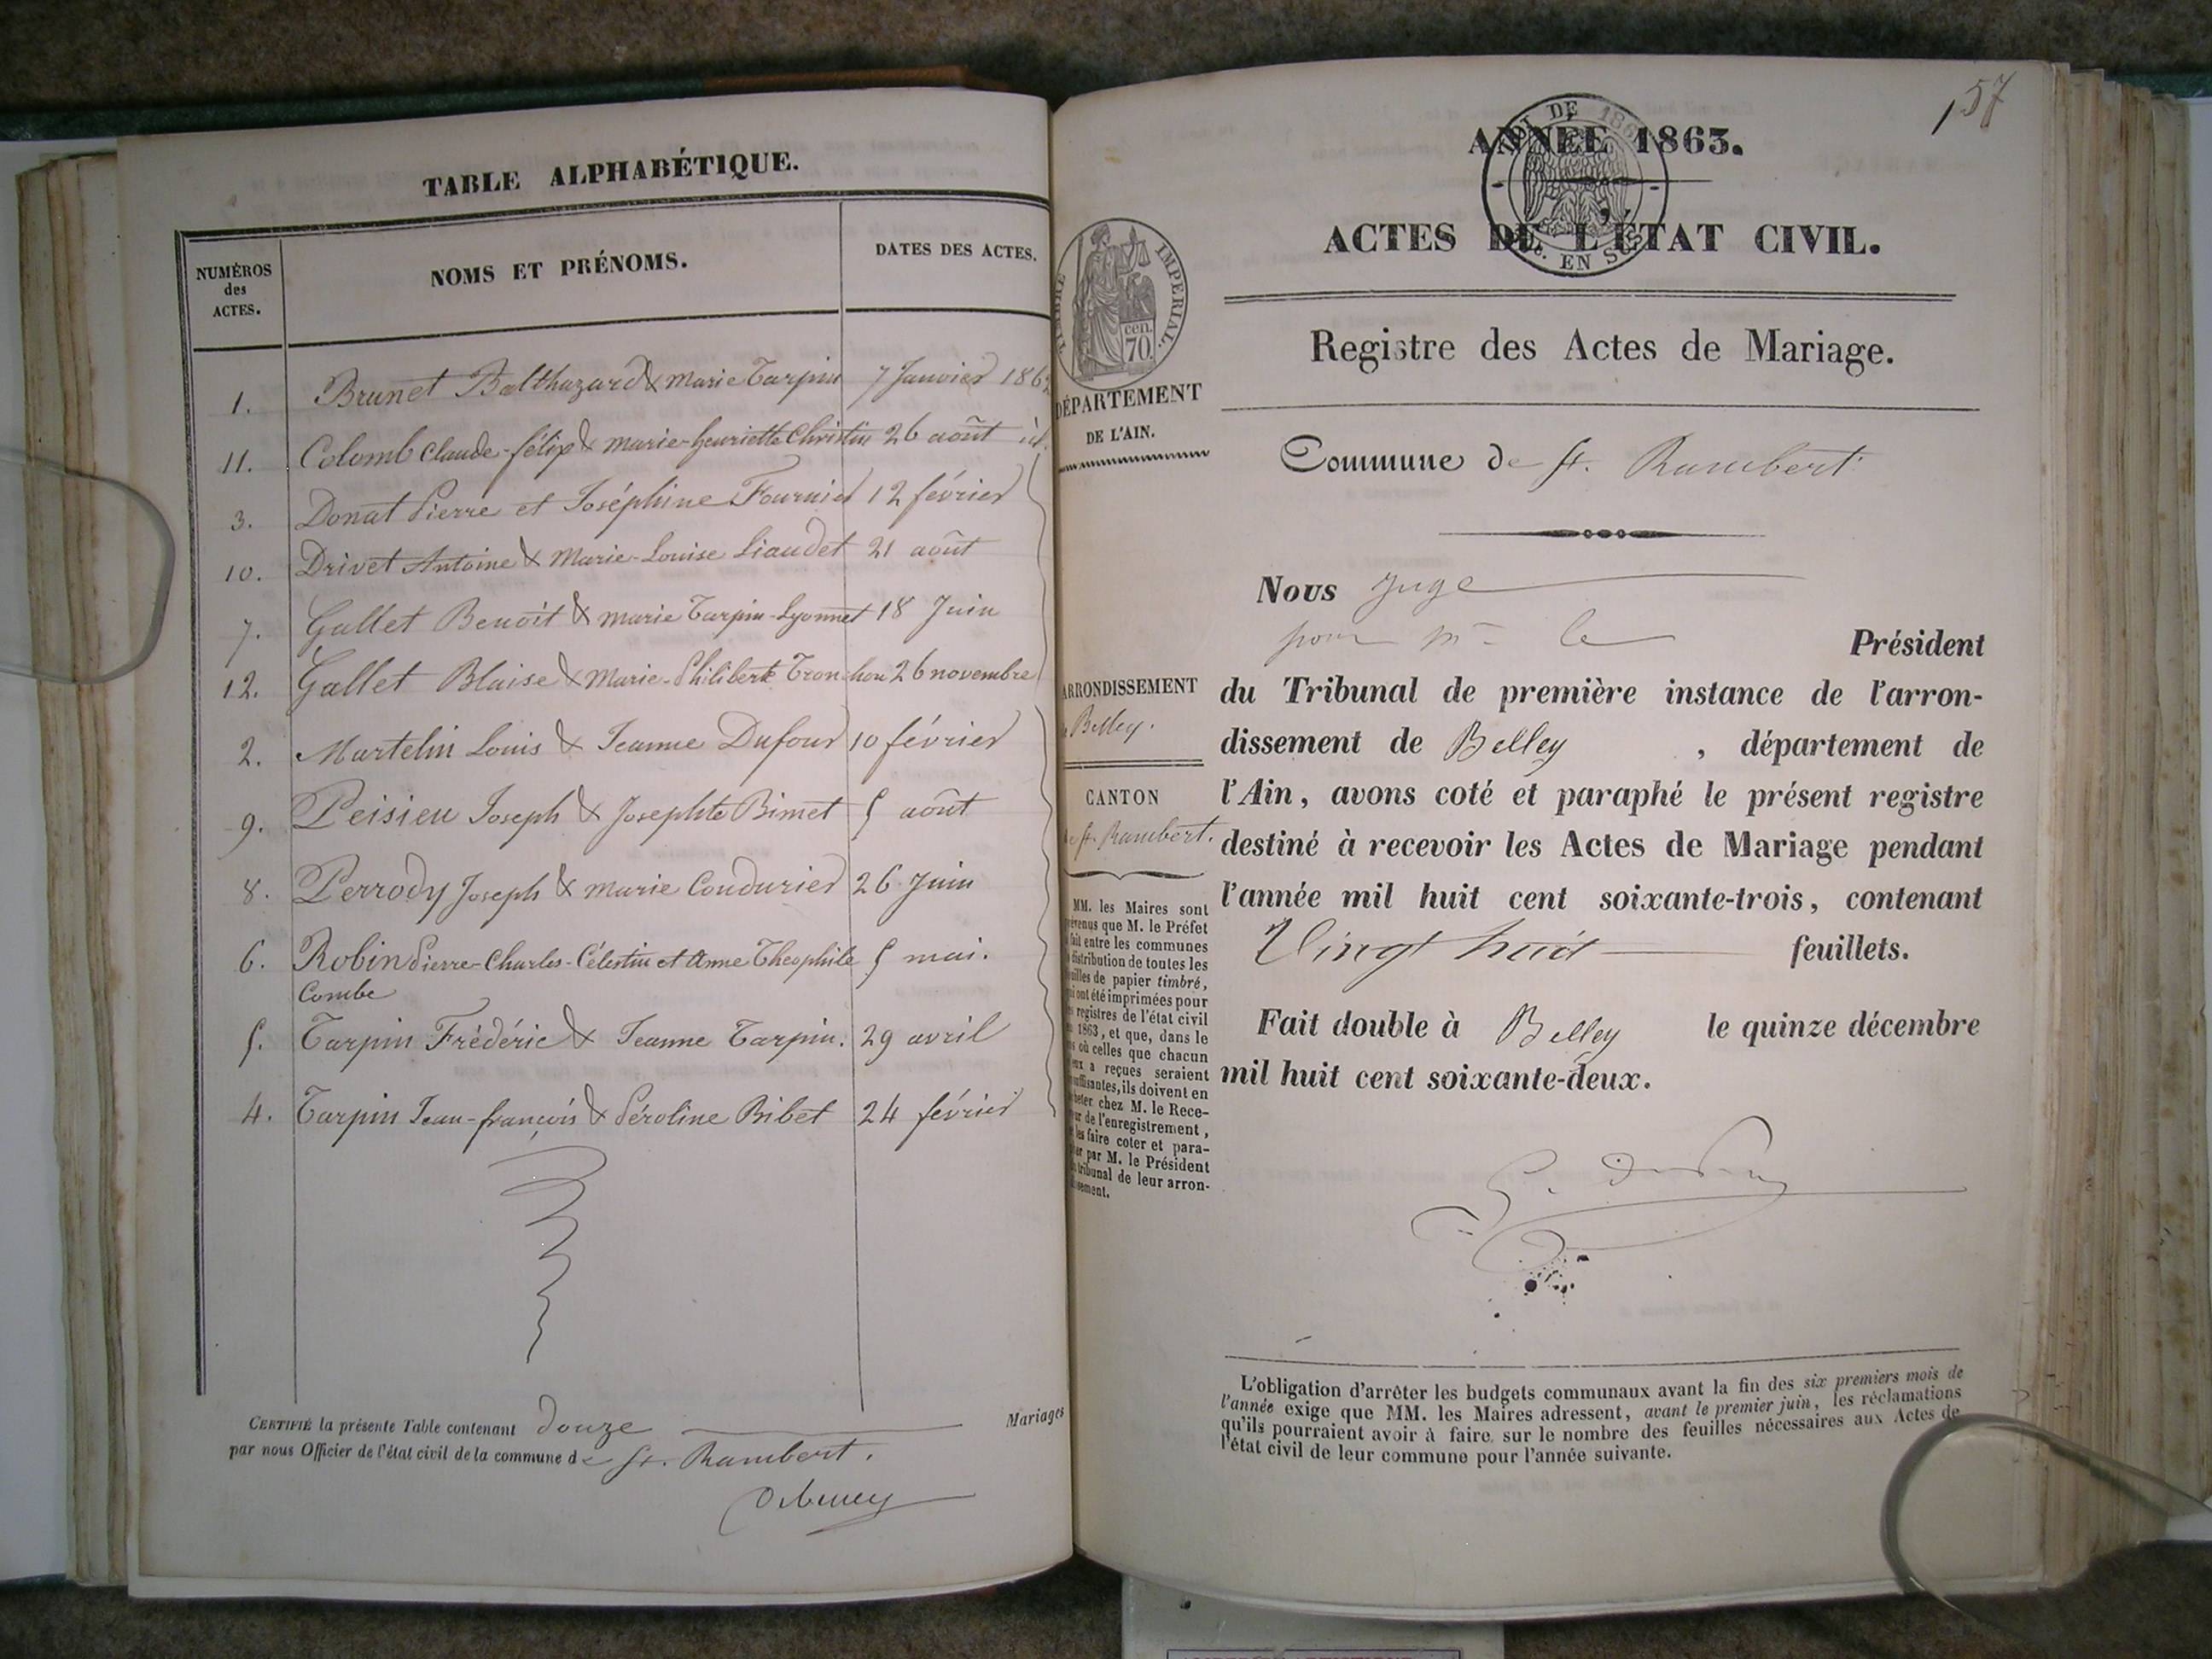 TABLE ALPHABÉTIQUE.
NUMÉROS des ACTES.
NOMS ET PRÉNOMS.
DATES DES ACTES.
1. Brunet Balthazard & Marie Tarpin 7 Janvier 186
11. Colomb Claude-félix & Marie-henriette Christin 26 août id.
3. Donat Pierre et Joséphine Fournier 12 février
10. Drivet Antoine & Marie-Louise Liaudet 21 août
7. Gallet Benoît & Marie Tarpin-Lyonnet 18 Juin
12. Gallet Blaise & Marie-Philiberte Tronchon 26 novembre
2. Martelin Louis & Jeanne Dufour 10 février
9. Peisieu Joseph & Josephte Bimet 5 août
8. Perrody Joseph & Marie Coudurier 26 Juin
6. Robin Pierre-Charles-Célestin et Anne Théophile 5 mai.
Combe
5. Tarpin Frédéric & Jeanne Tarpin. 29 avril
4. Tarpin Jean-françois & Péroline Bibet 24 février
CERTIFIÉ la présente Table contenant douze Mariages
par nous Officier de l'état civil de la commune de St. Rambert.
157
ANNÉE 1863.
ACTES DE L'ÉTAT CIVIL.
Registre des Actes de Mariage.
TIMBRE IMPÉRIAL.
cen.
70.
DÉPARTEMENT
DE L'AIN.
Commune de St. Rambert
Nous Juge
pour Mr le Président
du Tribunal de première instance de l'arron-
dissement de Belley , département de
l'Ain, avons coté et paraphé le présent registre
destiné à recevoir les Actes de Mariage pendant
l'année mil huit cent soixante-trois, contenant
Vingt huit feuillets.
Fait double à Belley le quinze décembre
mil huit cent soixante-deux.
ARRONDISSEMENT
Belley.
CANTON
de St. Rambert.
MM. les Maires sont
prévenus que M. le Préfet
fait entre les communes
distribution de toutes les
feuilles de papier timbré,
qui ont été imprimées pour
les registres de l'état civil
1863, et que, dans le
cas où celles que chacun
d'eux a reçues seraient
insuffisantes, ils doivent en
acheter chez M. le Rece-
veur de l'enregistrement,
les faire coter et para-
pher par M. le Président
du tribunal de leur arron-
dissement.
L'obligation d'arrêter les budgets communaux avant la fin des six premiers mois de
l'année exige que MM. les Maires adressent, avant le premier juin, les réclamations
qu'ils pourraient avoir à faire sur le nombre des feuilles nécessaires aux Actes de
l'état civil de leur commune pour l'année suivante.